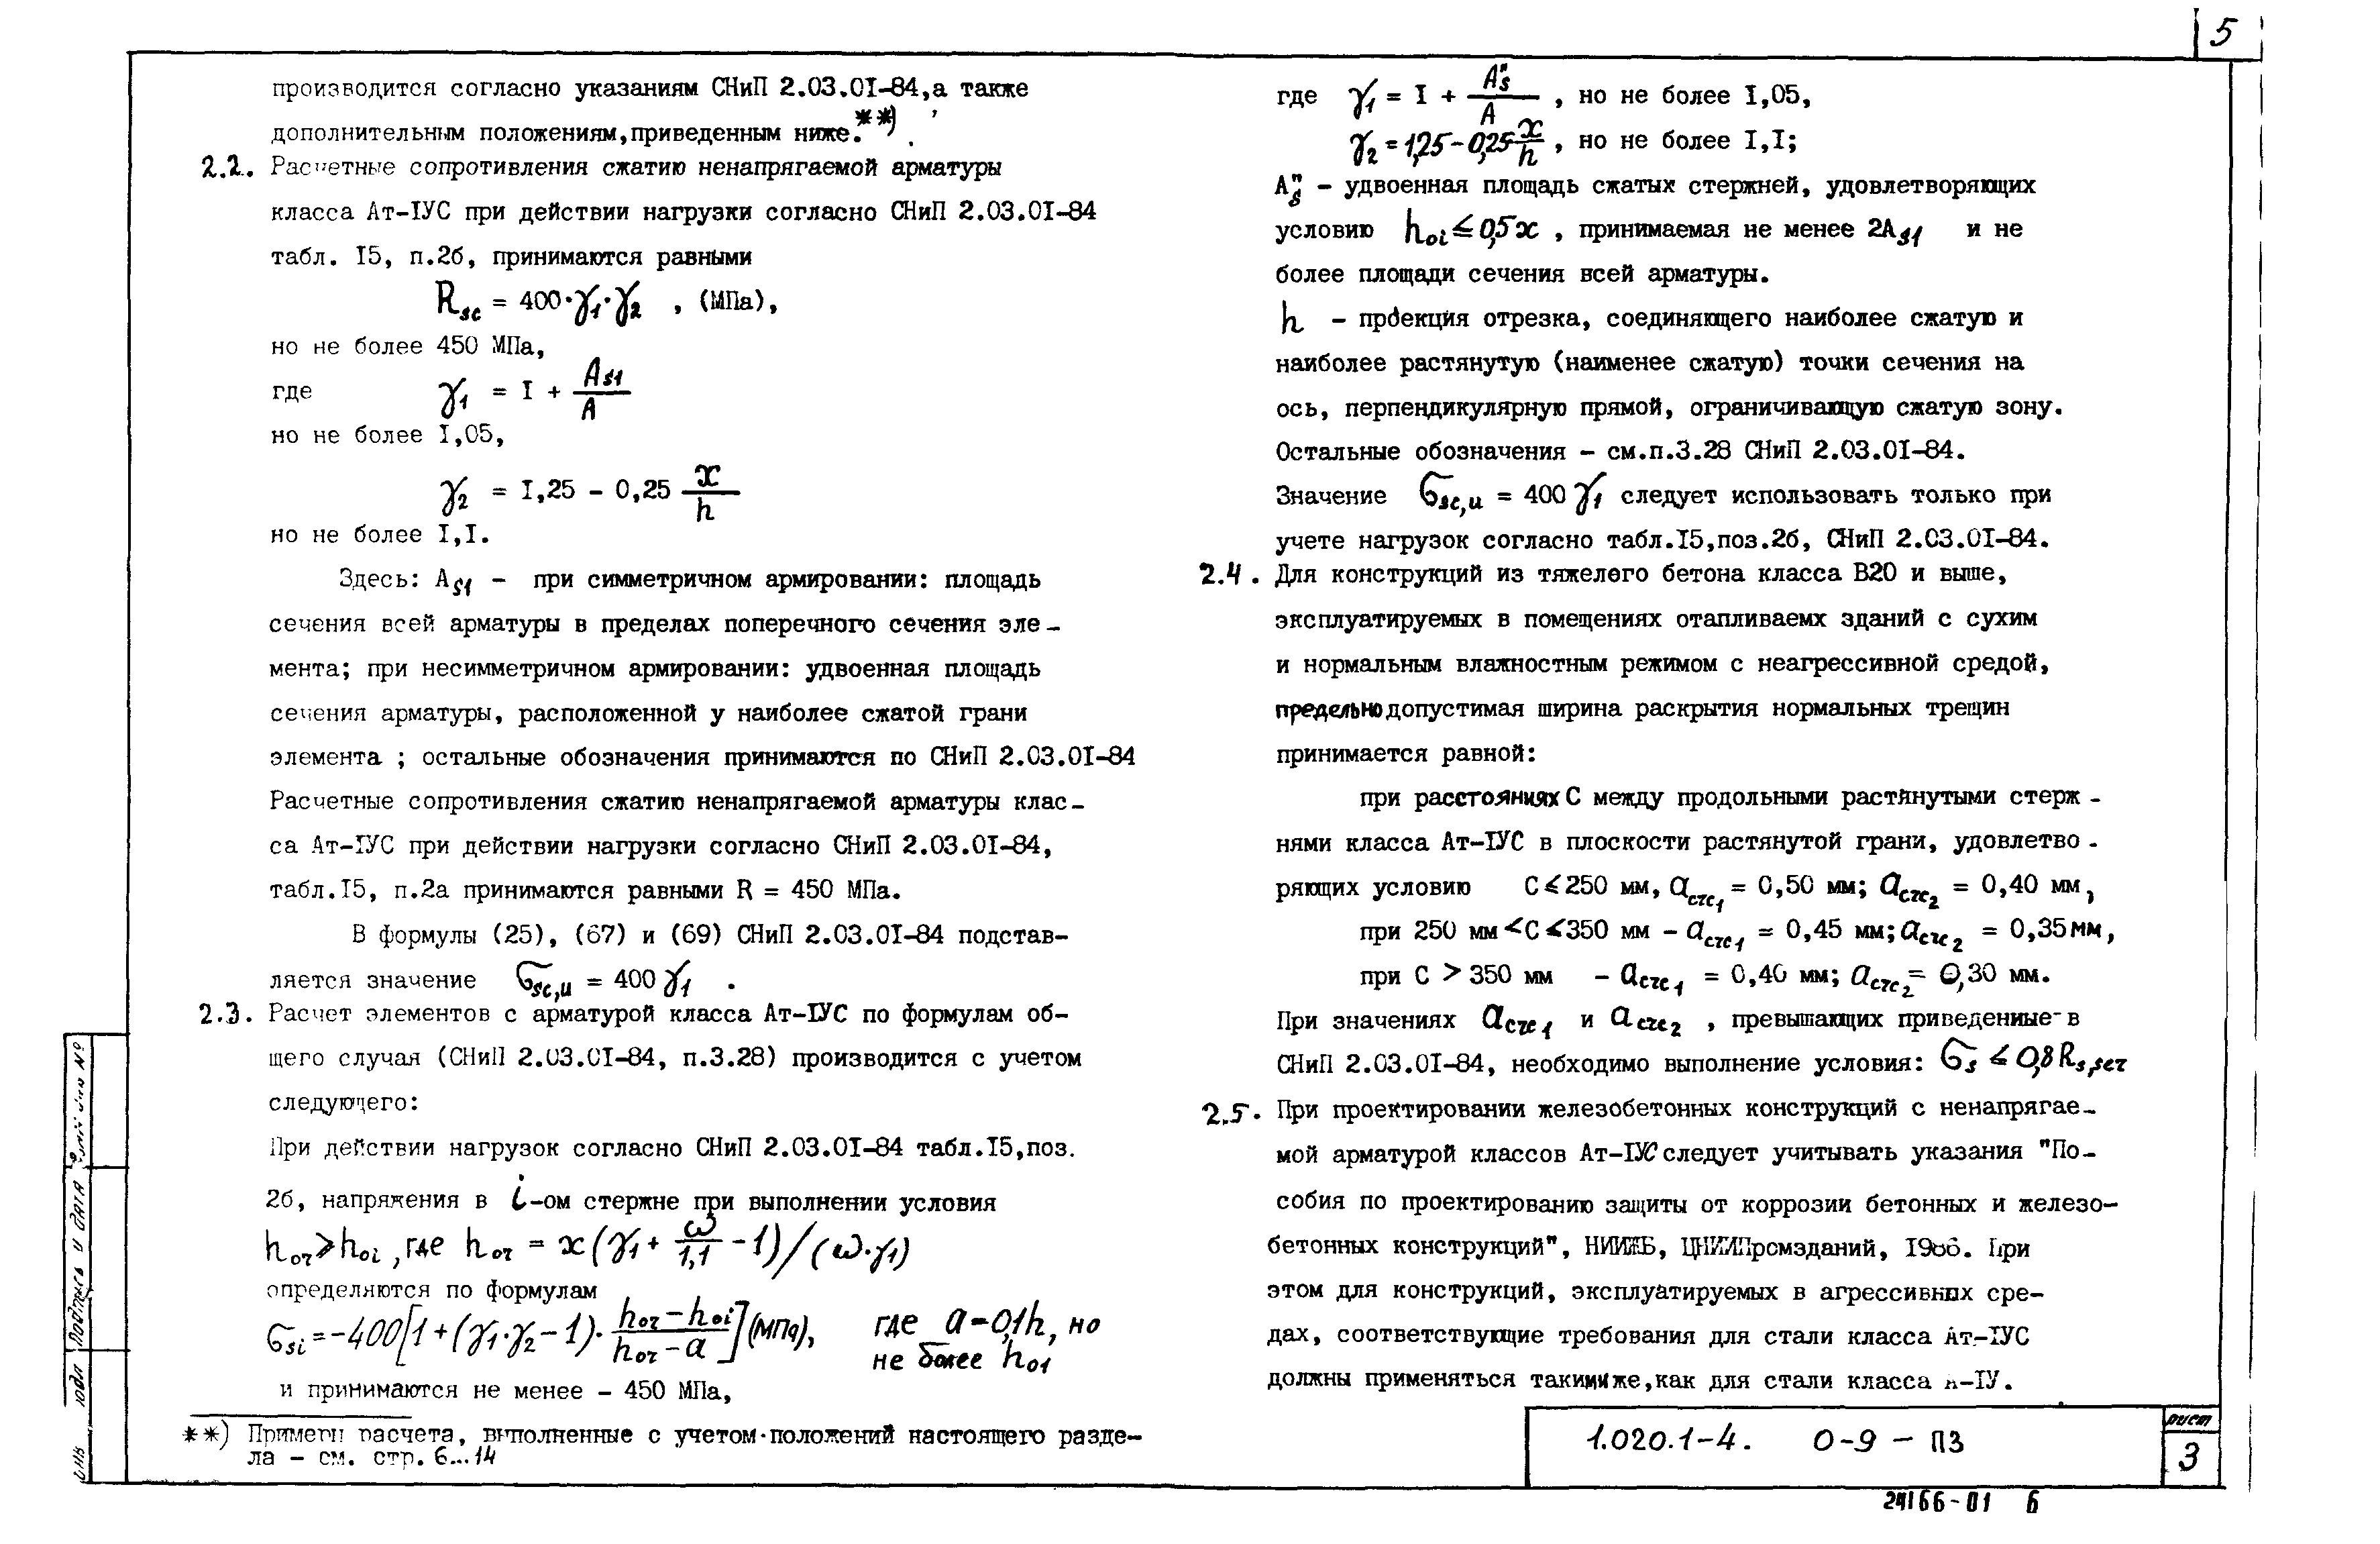 5
производится согласно указаниям СНиП 2.03.01-84,а также
дополнительным положениям,приведенным ниже.**)
2.2. Расчетные сопротивления сжатию ненапрягаемой арматуры
класса Ат-IУС при действии нагрузки согласно СНиП 2.03.01-84
табл. 15, п.2б, принимаются равными
Rsc = 400·γ1·γ2 , (МПа),
но не более 450 МПа,
где γ1 = I + As1/A
но не более I,05,
γ2 = I,25 - 0,25 x/h
но не более I,I.
Здесь: As1 - при симметричном армировании: площадь
сечения всей арматуры в пределах поперечного сечения эле-
мента; при несимметричном армировании: удвоенная площадь
сечения арматуры, расположенной у наиболее сжатой грани
элемента ; остальные обозначения принимаются по СНиП 2.03.01-84
Расчетные сопротивления сжатию ненапрягаемой арматуры клас-
са Ат-IУС при действии нагрузки согласно СНиП 2.03.01-84,
табл.15, п.2а принимаются равными R = 450 МПа.
В формулы (25), (67) и (69) СНиП 2.03.01-84 подстав-
ляется значение σsc,u = 400 γ1 .
2.3. Расчет элементов с арматурой класса Ат-IУС по формулам об-
щего случая (СНиП 2.03.01-84, п.3.28) производится с учетом
следующего:
При действии нагрузок согласно СНиП 2.03.01-84 табл.15,поз.
2б, напряжения в i-ом стержне при выполнении условия
hоr ≥ hoi , где hоr = x(γ1 + ω/1,1 - 1)/(ω·γ1)
определяются по формулам
σsi = -400[1+(γ1·γ2-1)· (hоr-hoi)/(hоr-a)] (МПа), где a=0,1h, но
не более h01
и принимаются не менее - 450 МПа,
**) Примеры расчета, выполненные с учетом положений настоящего разде-
ла - см. стр. 6...14
где γ1 = I + A"s/A , но не более I,05,
γ2 = 1,25-0,25 x/h , но не более I,I;
A"s - удвоенная площадь сжатых стержней, удовлетворяющих
условию hoi ≤ 0,5x , принимаемая не менее 2As1 и не
более площади сечения всей арматуры.
h - проекция отрезка, соединяющего наиболее сжатую и
наиболее растянутую (наименее сжатую) точки сечения на
ось, перпендикулярную прямой, ограничивающую сжатую зону.
Остальные обозначения - см.п.3.28 СНиП 2.03.01-84.
Значение σsc,u = 400 γ1 следует использовать только при
учете нагрузок согласно табл.15,поз.2б, СНиП 2.03.01-84.
2.4. Для конструкций из тяжелого бетона класса В20 и выше,
эксплуатируемых в помещениях отапливаемх зданий с сухим
и нормальным влажностным режимом с неагрессивной средой,
предельно допустимая ширина раскрытия нормальных трещин
принимается равной:
при расстояниях С между продольными растянутыми стерж -
нями класса Ат-IУС в плоскости растянутой грани, удовлетво -
ряющих условию С ≤ 250 мм, acrc1 = 0,50 мм; acrc2 = 0,40 мм,
при 250 мм < С ≤ 350 мм - acrc1 = 0,45 мм; acrc2 = 0,35мм,
при С > 350 мм - acrc1 = 0,40 мм; acrc2 = 0,30 мм.
При значениях acrc1 и acrc2 , превышающих приведенные в
СНиП 2.03.01-84, необходимо выполнение условия: σs ≤ 0,8 Rs,ser
2.5. При проектировании железобетонных конструкций с ненапрягае-
мой арматурой классов Ат-IУС следует учитывать указания "По-
собия по проектированию защиты от коррозии бетонных и железо-
бетонных конструкций", НИИЖБ, ЦНИИПромзданий, 1986. При
этом для конструкций, эксплуатируемых в агрессивных сре-
дах, соответствующие требования для стали класса Ат-IУС
должны применяться такими же,как для стали класса А-IУ.
Подпись и дата
1.020.1-4. 0-9 - ПЗ
лист
3
24166-01 6